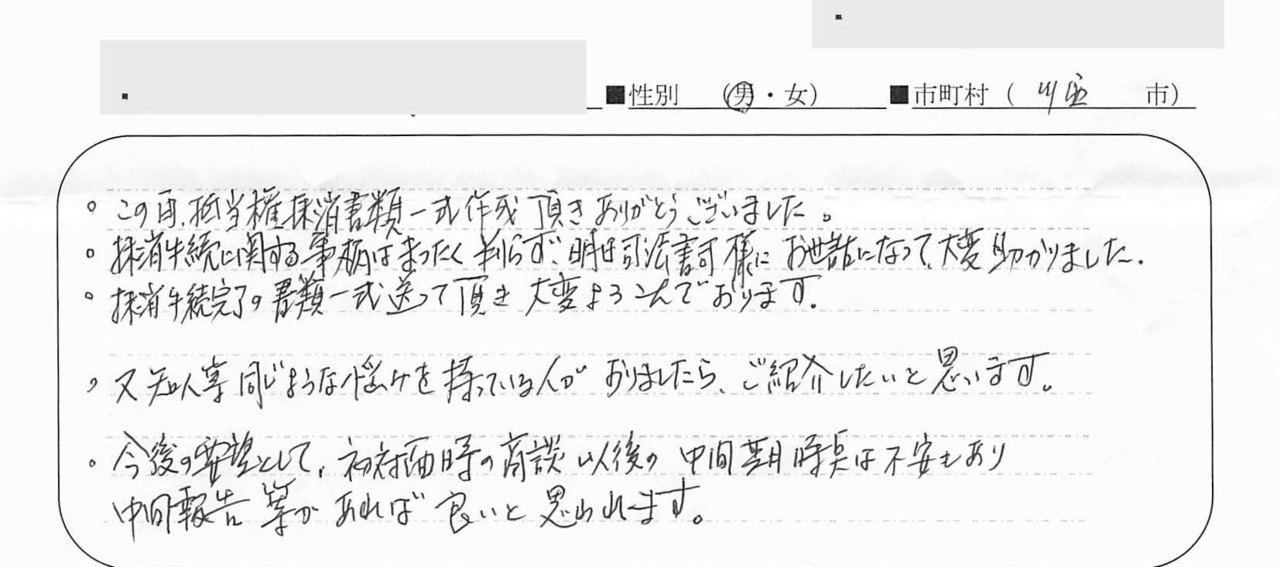 ■性別 (男・女) ■市町村 ( 市)
。この度、抵当権抹消書類一式作成頂きありがとうございました。
。抹消手続に関する事柄はまったく判らず、明日司法書司様にお世話になって、大変助かりました.
。抹消手続完了の書類一式送って頂き大変よろこんでおります.
，又知人等同じような悩みを持っている人がおりましたら、ご紹介したいと思います。
。今後の要望として、初対面時の商談以後の中間期時点は不安もあり
中間報告等があれば良いと思われます。